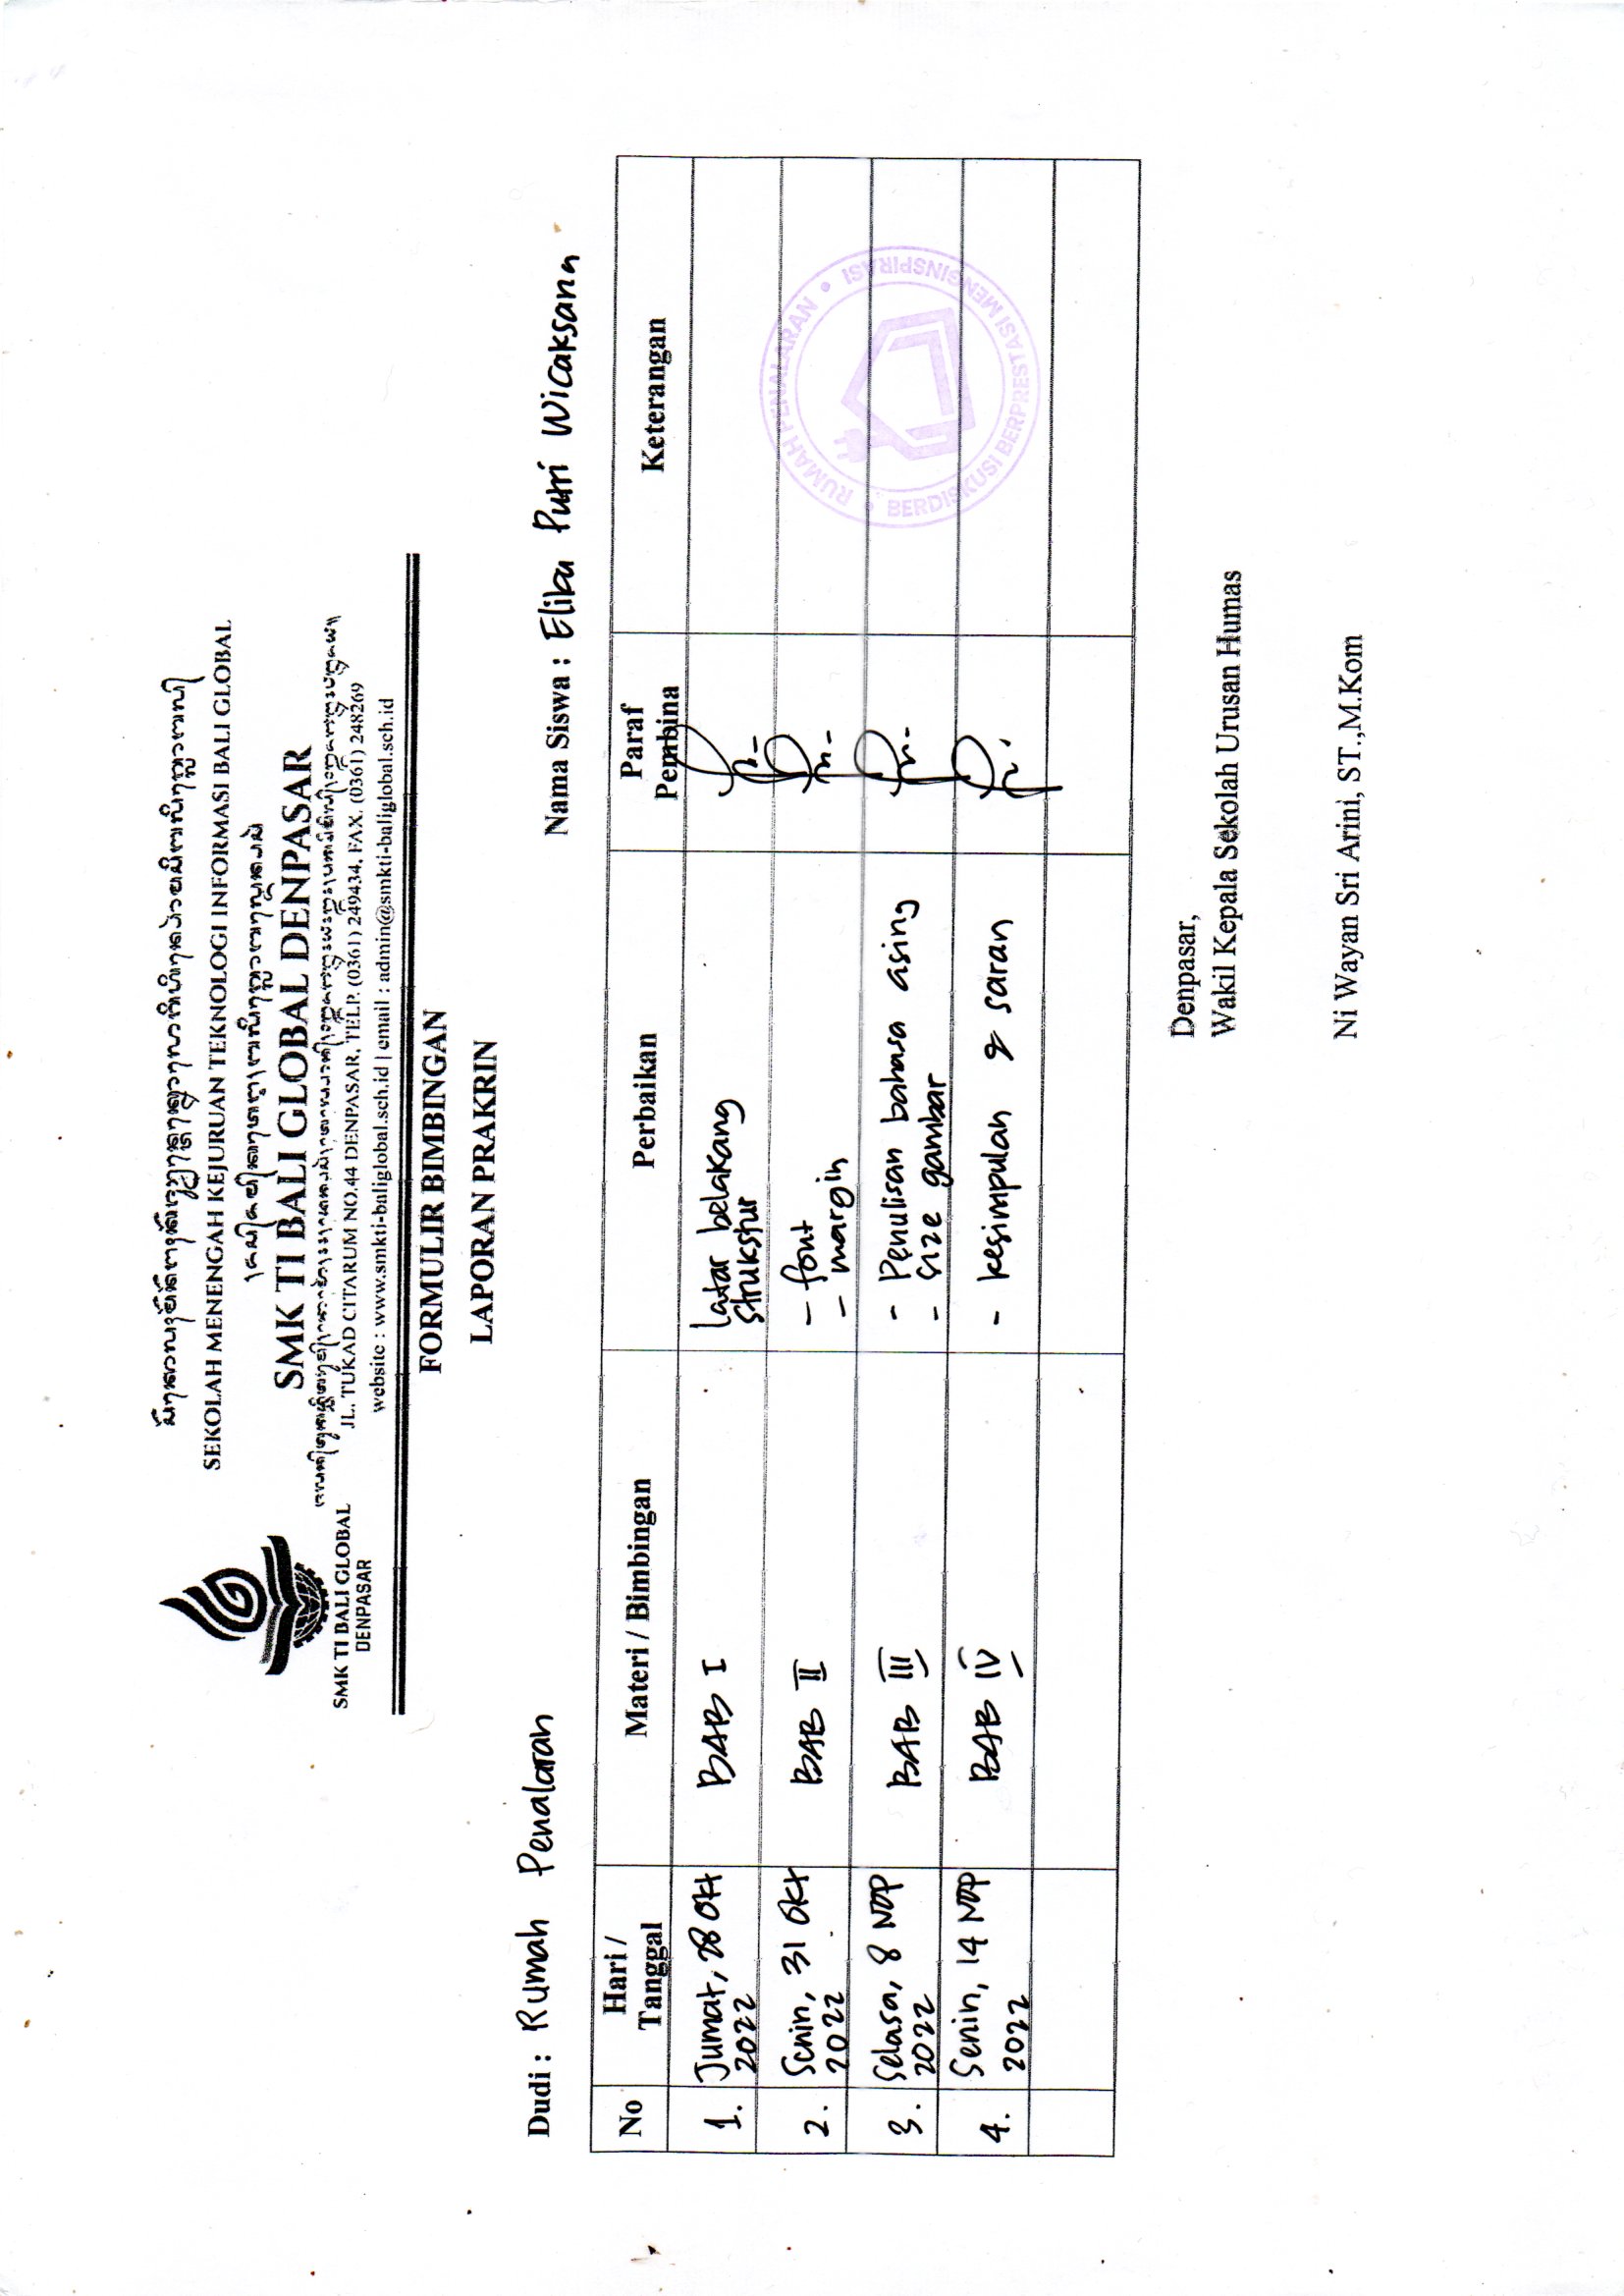 SEKOLAH MENENGAH KEJURUAN TEKNOLOGI INFORMASI BALI GLOBAL
SMK TI BALI GLOBAL DENPASAR
JL. TUKAD CITARUM NO.44 DENPASAR, TELP. (0361) 249434, FAX. (0361) 248269
website : www.smkti-baliglobal.sch.id | email : admin@smkti-baliglobal.sch.id
SMK TI BALI GLOBAL
DENPASAR
FORMULIR BIMBINGAN
LAPORAN PRAKRIN
Dudi : Rumah Penalaran
Nama Siswa : Elika Putri Wicaksana
No Hari / Tanggal Materi / Bimbingan Perbaikan Paraf Pembina Keterangan
1. Jumat, 28 Okt BAB I latar belakang
2022 strukstur
2. Senin, 31 Okt BAB II - font
2022 - margin
3. Selasa, 8 Nop BAB III - Penulisan bahasa asing
2022 - size gambar
4. Senin, 14 Nop BAB IV - kesimpulan & saran
2022
RUMAH PENALARAN
BERDISKUSI BERPRESTASI MENGINSPIRASI
Denpasar,
Wakil Kepala Sekolah Urusan Humas
Ni Wayan Sri Arini, ST.,M.Kom